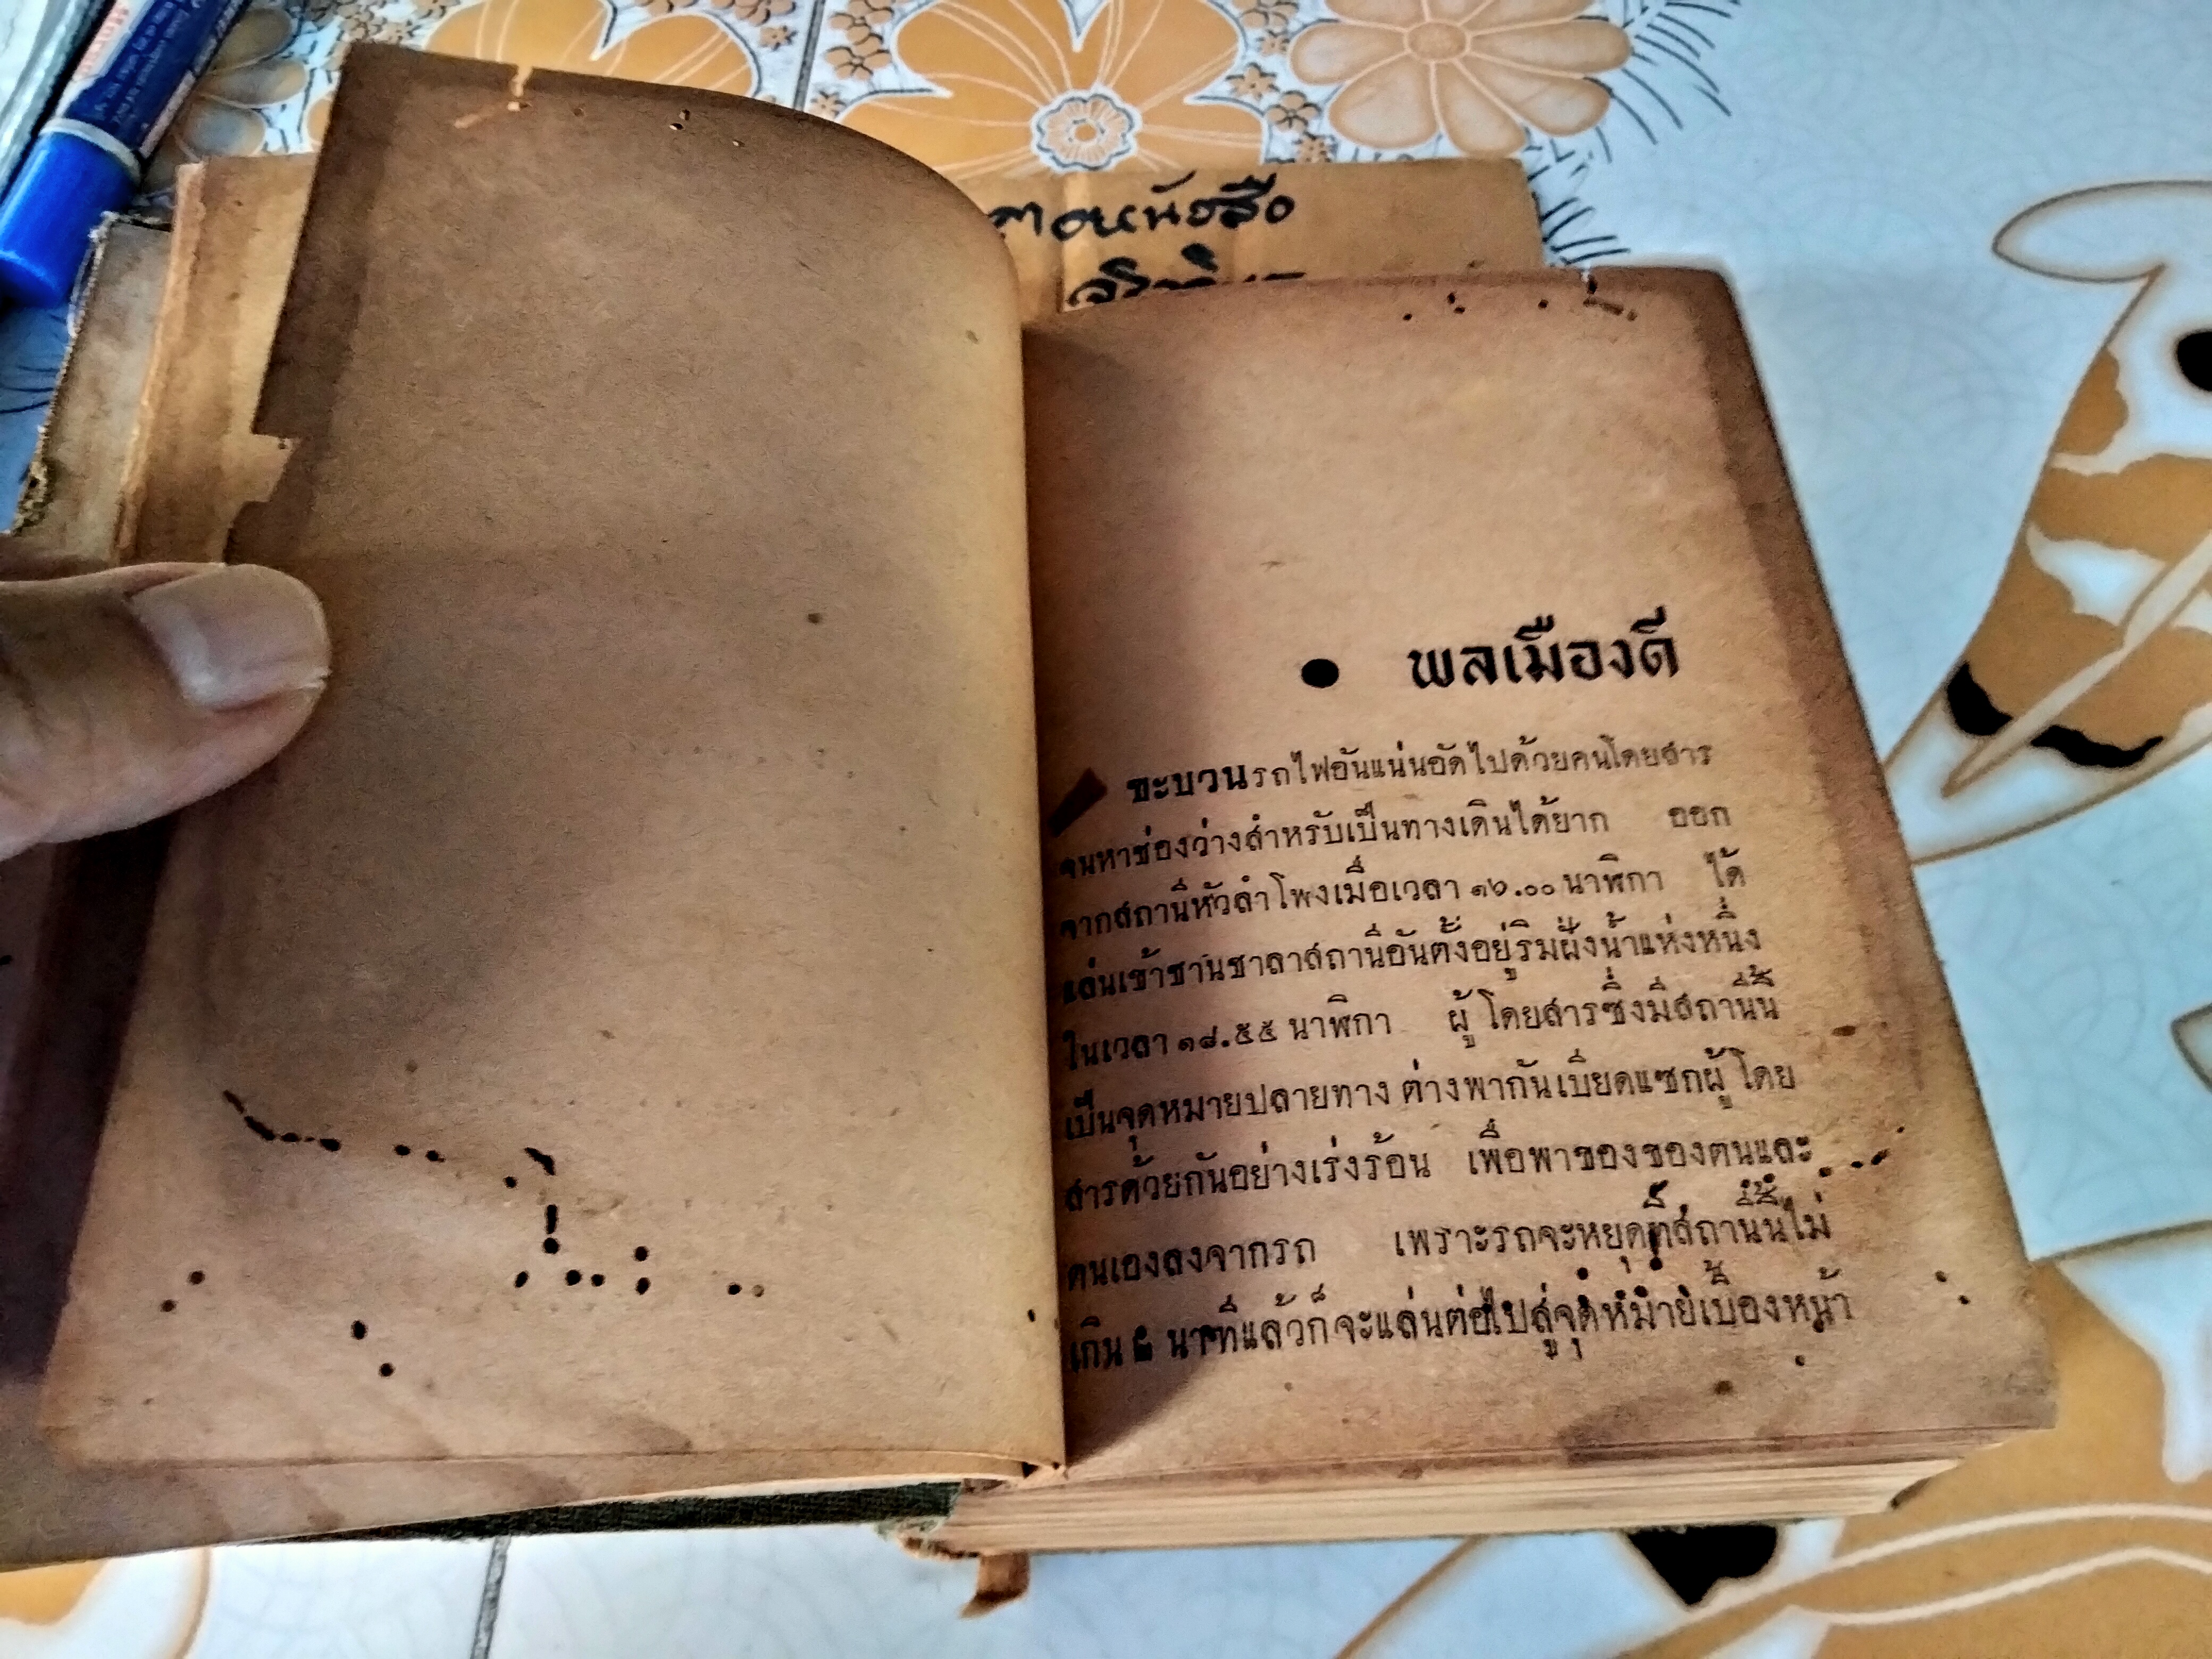 หนังสือ
● พลเมืองดี
ขะบวนรถไฟอันแน่นอัดไปด้วยคนโดยสาร
จนหาช่องว่างสำหรับเป็นทางเดินได้ยาก ออก
จากสถานีหัวลำโพงเมื่อเวลา ๑๖.๐๐ นาฬิกา ได้
แล่นเข้าชานชาลาสถานีอันตั้งอยู่ริมฝั่งน้ำแห่งหนึ่ง
ในเวลา ๑๘.๕๕ นาฬิกา ผู้โดยสารซึ่งมีสถานีนี้
เป็นจุดหมายปลายทาง ต่างพากันเบียดแซกผู้โดย
สารด้วยกันอย่างเร่งร้อน เพื่อพาของของตนและ
ตนเองลงจากรถ เพราะรถจะหยุดที่สถานีนี้ไม่
เกิน นาทีแล้วก็จะแล่นต่อไปสู่จุดหมายเบื้องหน้า